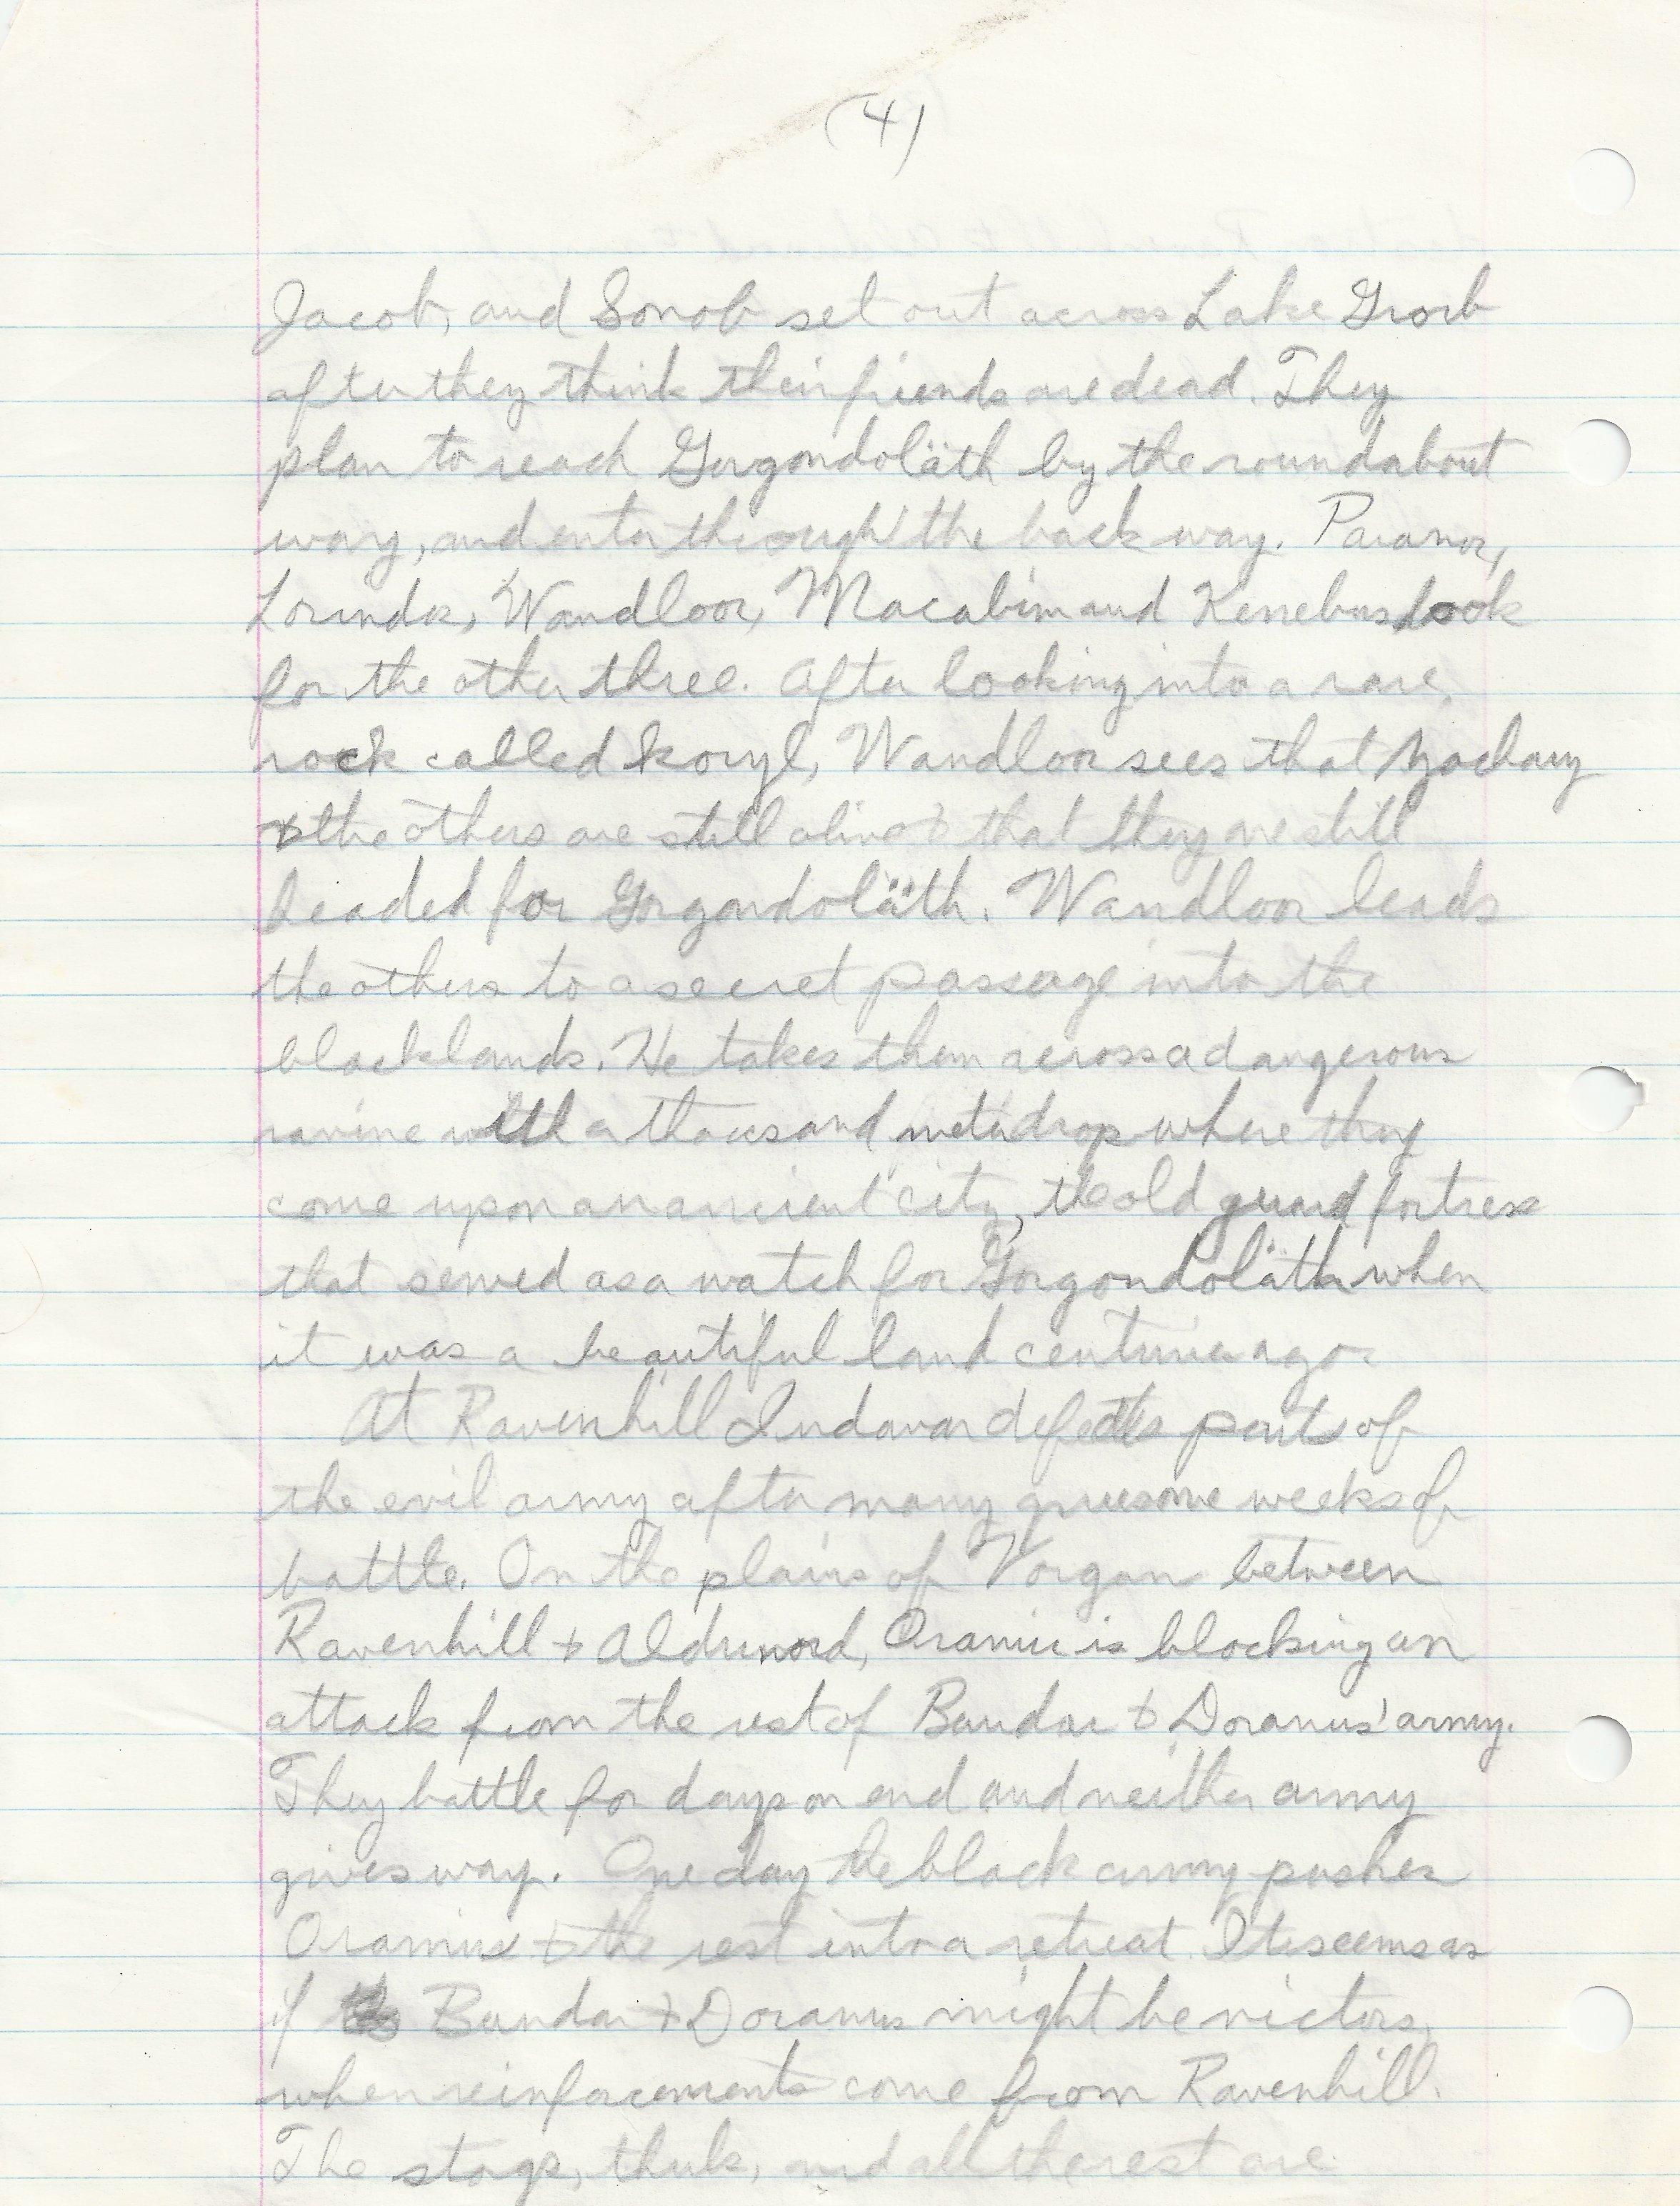 (4)
Jacob, and Sonob set out across Lake Grorb
after they think their friends are dead. They
plan to reach Gorgondoläth by the roundabout
way, and enter through the back way. Paranor,
Lorindor, Wandloor, Macabim and Kenebus look
for the other three. After looking into a rare
rock called koryl, Wandloor sees that Zachary
& the others are still alive & that they are still
headed for Gorgondoläth. Wandloor leads
the others to a secret passage into the
blacklands. He takes them across a dangerous
ravine with a thousand meter drop where they
come upon an ancient city, the old guard fortress
that served as a watch for Gorgondoläth when
it was a beautiful land centuries ago.
At Ravenhill Indavar defeats part of
the evil army after many gruesome weeks of
battle. On the plains of Vorgan between
Ravenhill & Aldrinord, Oramir is blocking an
attack from the rest of Bundar & Doranus' army.
They battle for days on end and neither army
gives way. One day the black army pushes
& the rest into a retreat. It seems as
if Bundar & Doranus might be victors,
when reinforcements come from Ravenhill.
The stags, and all the rest are